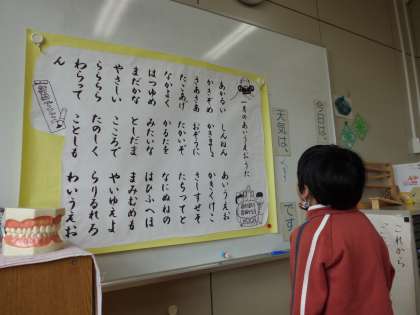 一月のあいうえおうた
あかるい しんねん あいうえお
かきぞめ かきくけこ
さあさあ おぞうに さしすせそ
たこあげ たかいぞ たちつてと
なかよく かるたを なにぬねの
はつゆめ みたいな はひふへほ
まだかな としだま まみむめも
やさしい こころで やいゆえよ
らららら たのしく らりるれろ
わらって ことしも わいうえお
ん
天気は、
です
これから